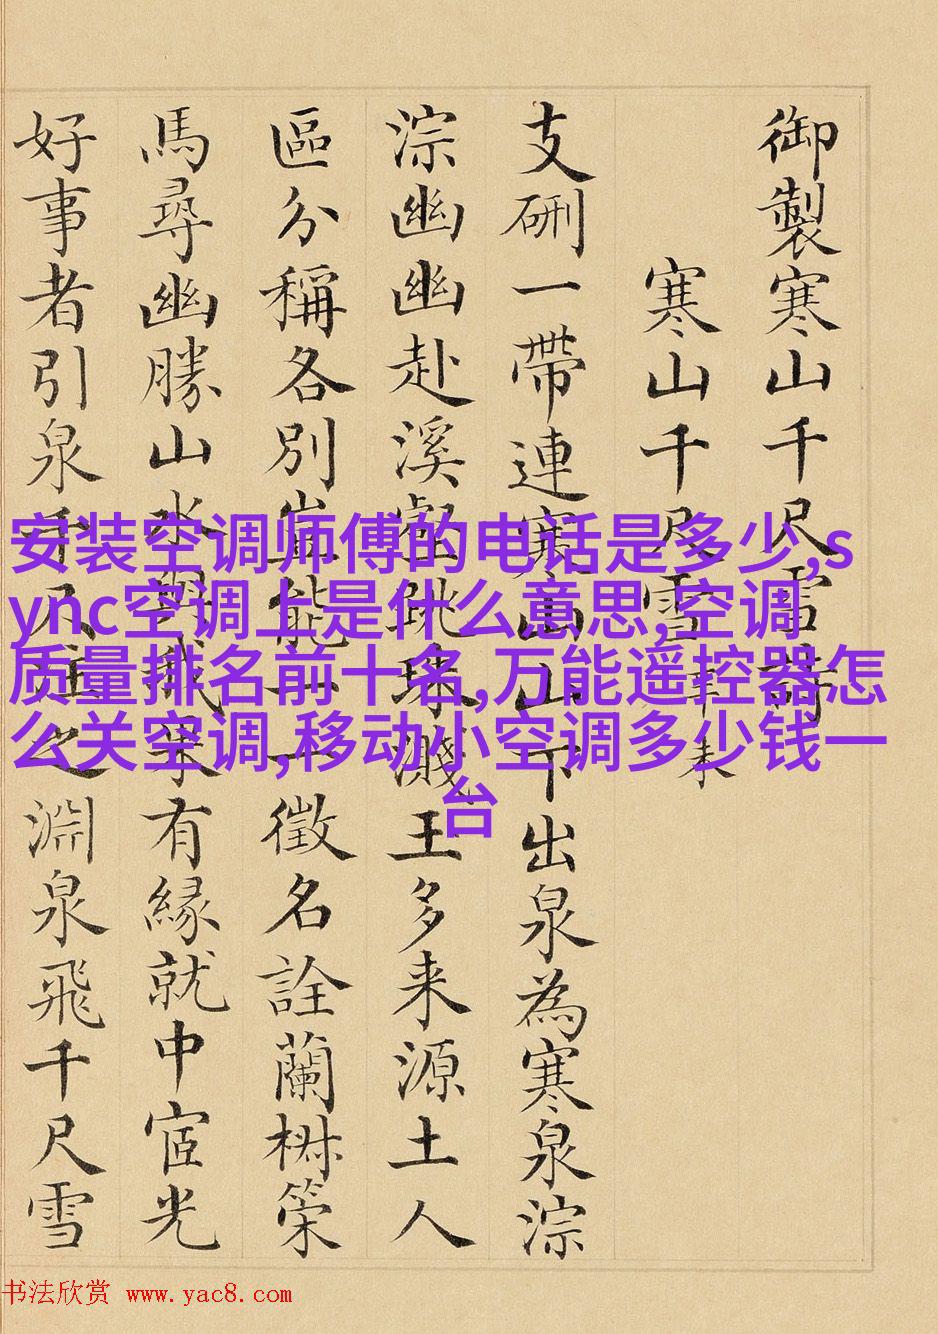 御製寒山千尺雪詩
寒山千尺雪聿来
支硎一帶連寒山山下出泉為寒泉淙
淙幽幽赴溪壑跳珠濺玉多来源土人
區分稱各別豈能一一徵名詮蘭椒策
馬尋幽勝山水與我果有緣就中宧光
好事者引泉千尺近之淵泉飛千尺雪
安装空调师傅的电话是多少,s
ync空调上是什么意思,空调
质量排名前十名,万能遥控器怎
么关空调,移动小空调多少钱一
台
书法欣赏 www.yac8.com